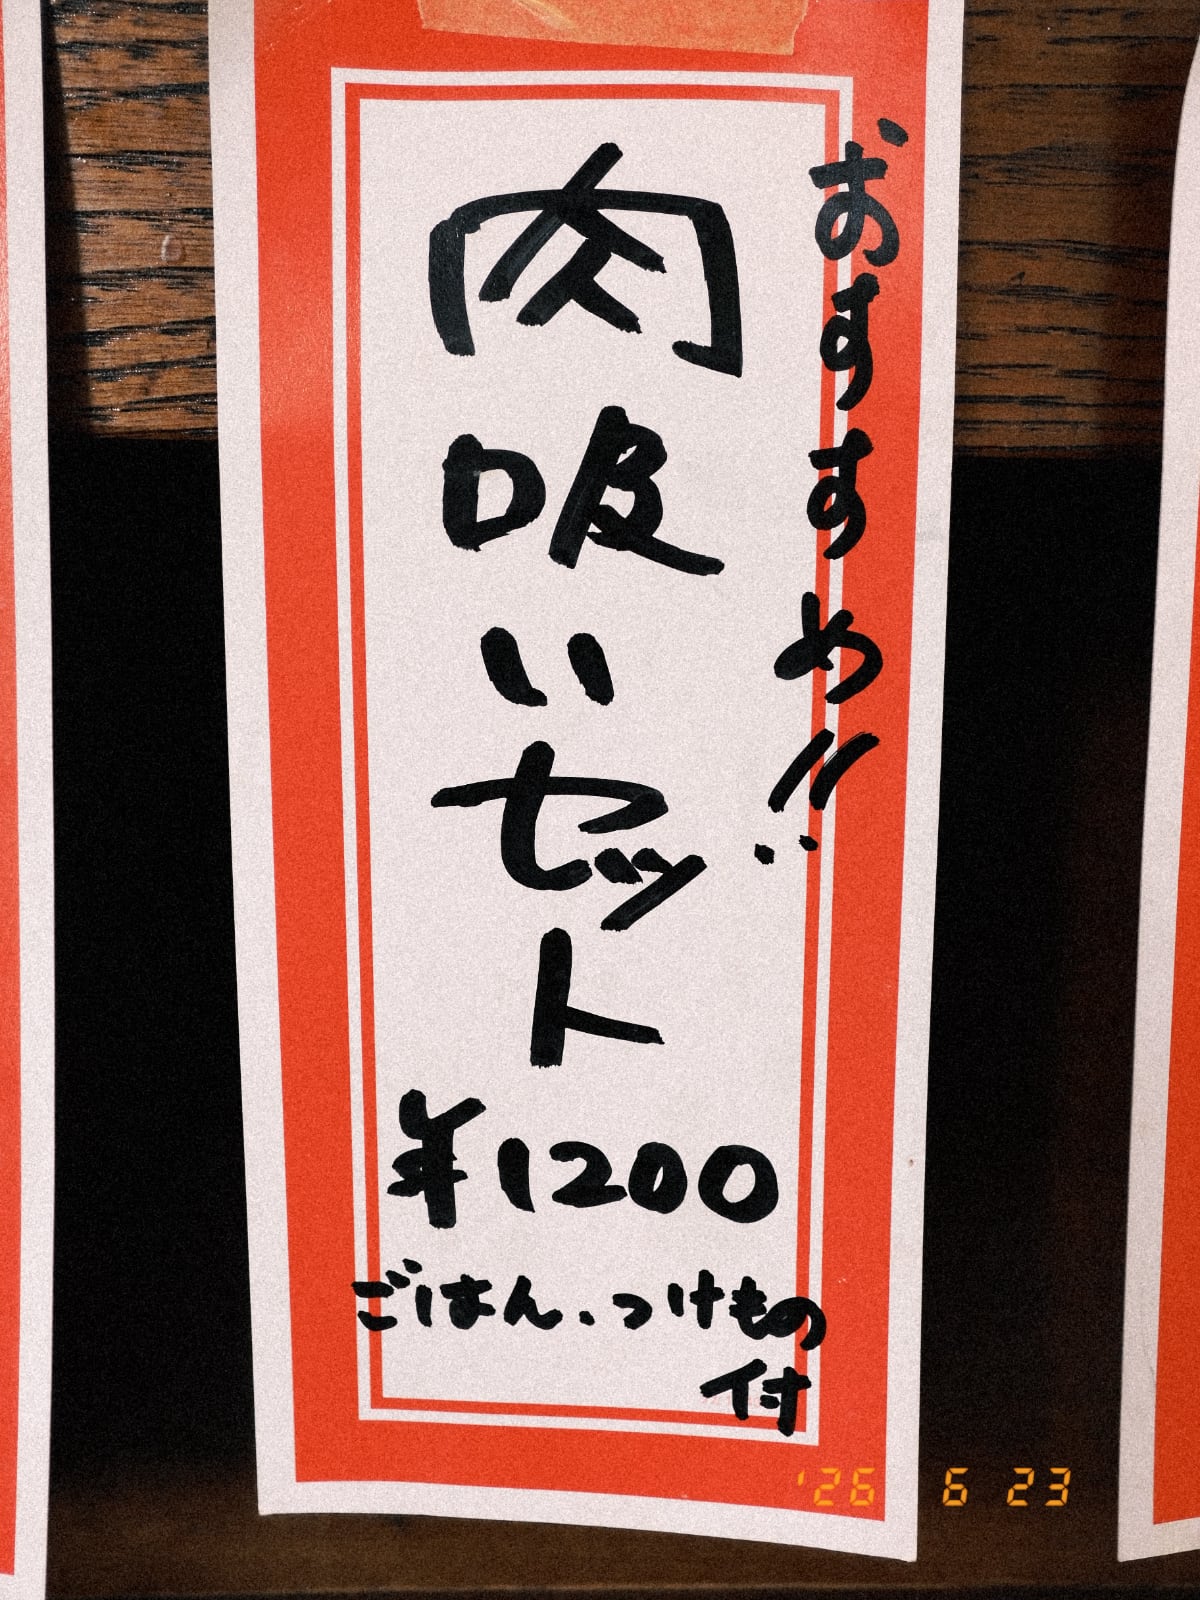 おすすめ!!
肉吸いセット
¥1200
ごはん、つけもの
付
'26 6 23